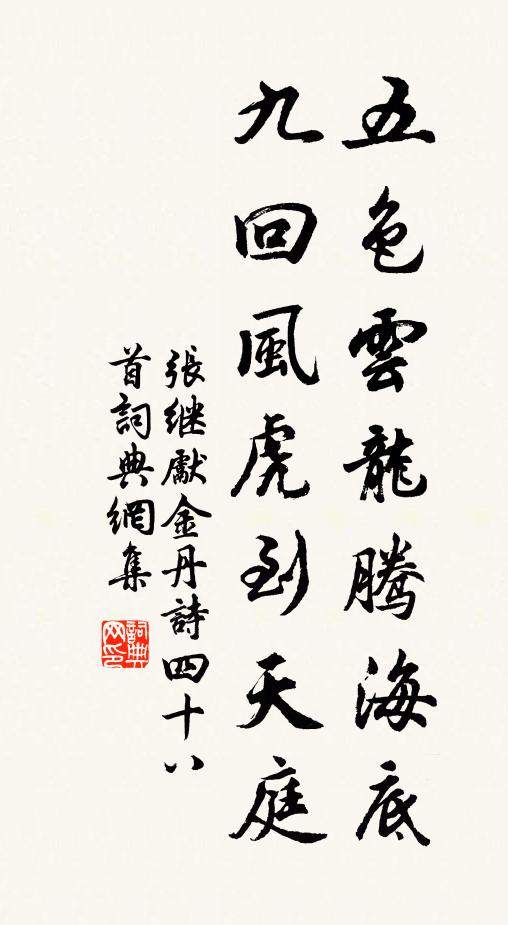 五色雲龍騰海底
九回風虎到天庭
張继獻金丹詩四十八
首詞典網集
詞典
网印